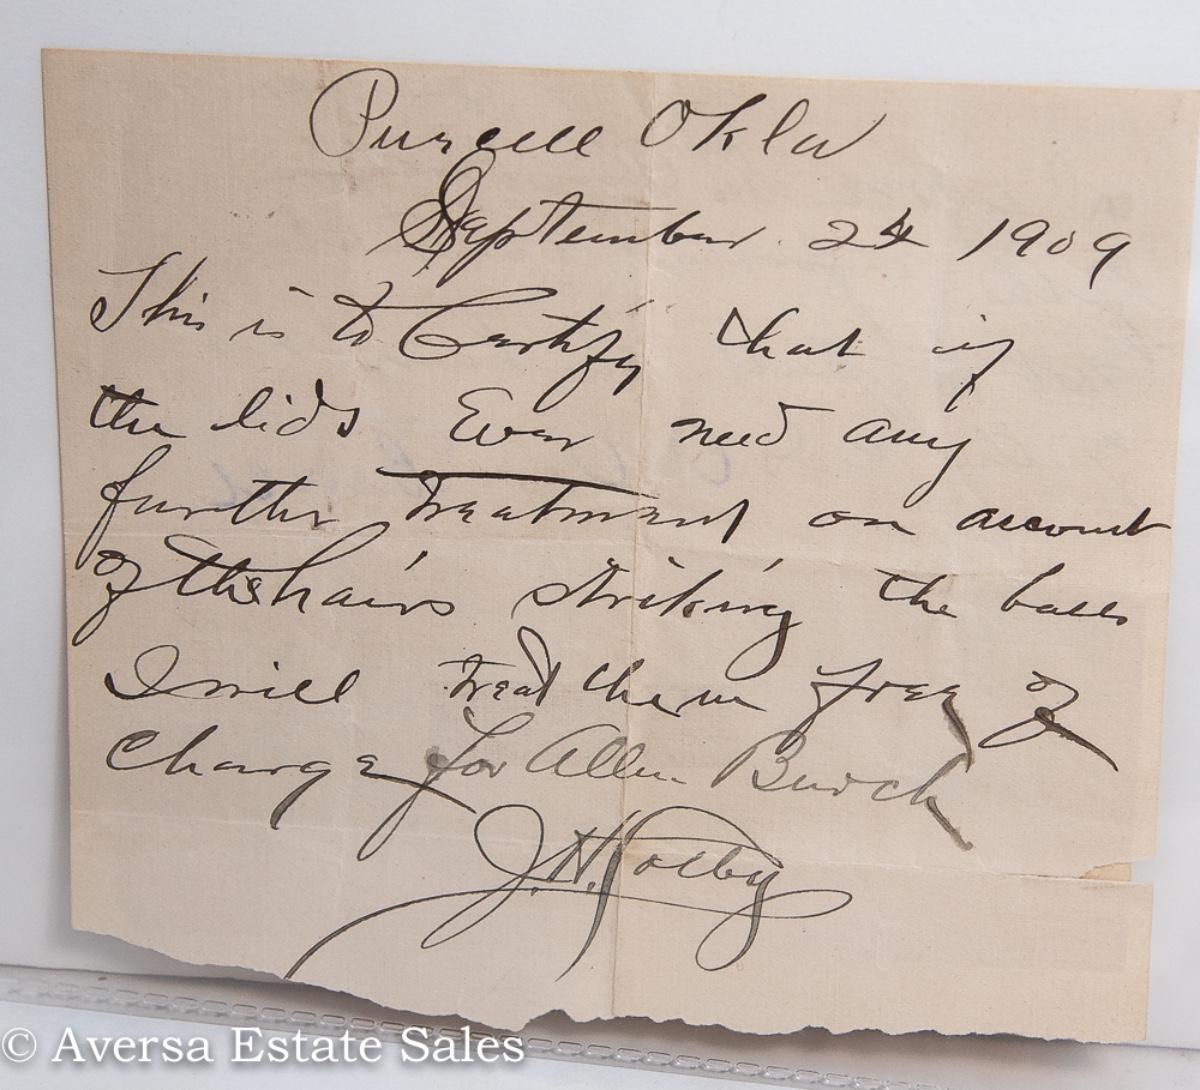 Purcell Okla
September 24 1909
This is to Certify that if
the lids Ever need any
further treatment on account
of the hairs striking the balls
I will treat them free of
charge for Allen Burch
J.H. Colby
© Aversa Estate Sales